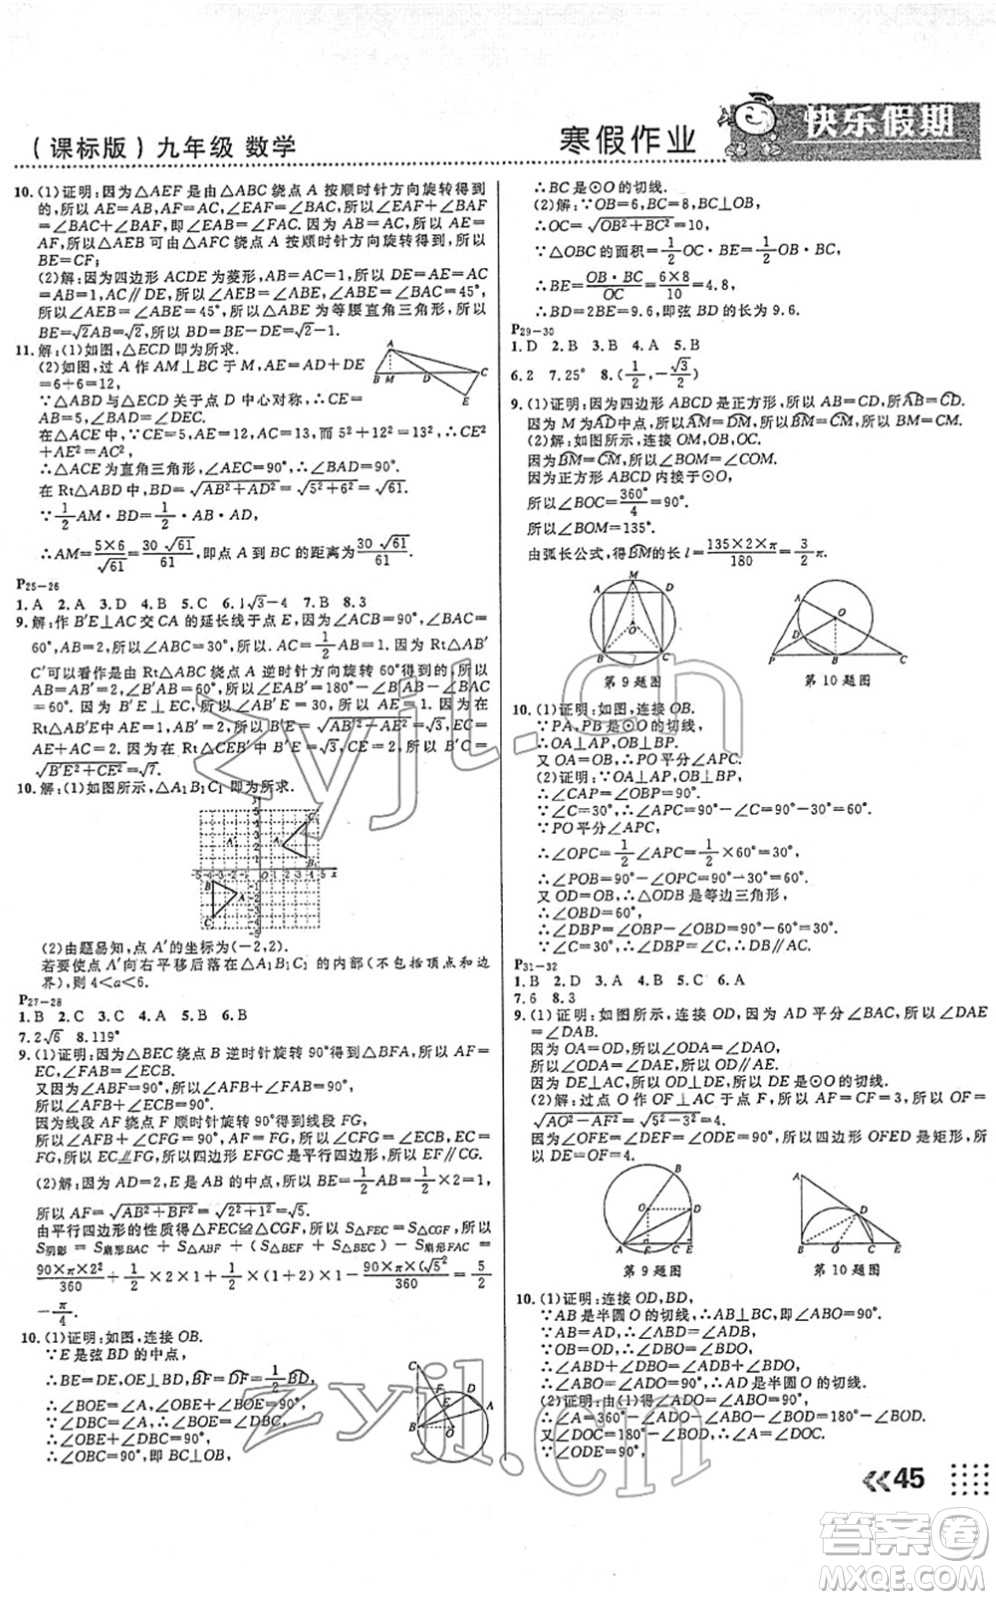 (课标版)九年级 数学
寒假作业
快乐假期
10.(1)证明:因为△AEF是由△ABC绕点A按顺时针方向旋转得到
的,所以AE=AB,AF=AC,∠EAF=∠BAC,所以∠EAF+∠BAF
=∠BAC+∠BAF,即∠EAB=∠FAC.因为AB=AC,所以AE=
AF,所以△AEB可由△AFC绕点A按顺时针方向旋转得到,所以
BE=CF;
(2)解:因为四边形ACDE为菱形,AB=AC=1,所以DE=AE=AC
=AB=1,AC∥DE,所以∠AEB=∠ABE,∠ABE=∠BAC=45°,
所以∠AEB=∠ABE=45°,所以△ABE为等腰直角三角形,所以
BE=√2AB=√2,所以BD=BE-DE=√2-1.
11.解:(1)如图,△ECD即为所求.
(2)如图,过A作AM⊥BC于M,AE=AD+DE
=6+6=12.
∵△ABD与△ECD关于点D中心对称,∴CE=
AB=5,∠BAD=∠DEC.
在△ACE中,∵CE=5,AE=12,AC=13,而5²+12²=13²,即CE²
+AE²=AC²,
∴△ACE为直角三角形,∠AEC=90°,∴∠BAD=90°.
在Rt△ABD中,BD=√(AB²+AD²)=√(5²+6²)=√61.
∵1/2AM·BD=1/2·AB·AD,
∴AM=5×6/√61=30√61/61,即点A到BC的距离为30√61/61.
P25-26
1.A 2.A 3.D 4.B 5.C 6.4√3-4 7.B 8.3
9.解:作B′E⊥AC交CA的延长线于点E,∵∠ACB=90°,∠BAC=
60°,AB=2,所以∠ABC=30°,所以AC=1/2AB=1,因为Rt△AB′
C′可以看作是由Rt△ABC绕点A逆时针方向旋转60°得到的,所以
AB=AB′=2,∠B′AB=60°,所以∠EAB′=180°-∠B′AB-∠BAC=
60°.因为B′E⊥EC,所以∠AB′E=30,所以AE=1,所以在Rt△
AB′E中,AE=1,AB′=2,所以B′E=√(AB′²-AE²)=√3,所以EC=AE+
AC=2.所以在Rt△CEB′中,B′E=√3,CE=2,所以B′C=
√(B′E²+CE²)=√7.
10.解:(1)如图所示,△A₁B₁C₁即为所求.
(2)由题易知,点A′的坐标为(-2,2).
若要使点A′向右平移后落在△A₁B₁C₁的内部(不包括顶点和边
界),则4<a<6.
P27-28
1.B 2.C 3.C 4.A 5.B 6.B
7.2√6 8.119°
9.(1)证明:因为△BEC绕点B逆时针旋转90°得到△BFA,所以AF=
EC,∠AFB=∠CEB=90°.
又因为∠ABC=90°,所以∠AFB+∠FBC=180°,所以AF∥BC,
所以∠AFB+∠AFG=90°.
因为线段AF绕点F顺时针旋转90°得线段FG,
所以∠AFB+∠CFG=∠AFG=90°,所以∠CFG=∠FAB=∠ECB,
所以EC∥FG,所以四边形EFGC是平行四边形,所以EF∥CG.
(2)解:因为AD=2,E是AB的中点,所以BF=BE=1/2AB=1/2×2=1,
所以AF=√(AB²+BF²)=√(2²+1²)=√5.
由平行四边形的性质得△FEC≌△CGF,所以S△FEC=S△CGF,所以
S阴影=S扇形BAC+S△ABF+(S△BEF+S△BEC)-S扇形FAC=
90×π×2²/360+1/2×2×1+1/2×(1+2)×1-90×π×(√5)²/360=5/2
-π/4.
10.(1)证明:如图,连接OB.
∵E是弦BD的中点,
∴BE=DE,OE⊥BD,BF=DF=1/2BD,
∴∠BOE=∠A,∠OBE+∠BOE=90°,
∵∠DBC=∠A,∴∠BOE=∠DBC,
∴∠OBE+∠DBC=90°,
∴∠OBC=90°,即BC⊥OB,
∴BC是⊙O的切线.
(2)解:∵OB=6,BC=8,BC⊥OB,
∴OC=√(OB²+BC²)=10,
∵△OBC的面积=1/2OC·BE=1/2OB·BC,
∴BE=OB·BC/OC=6×8/10=4.8,
∴BD=2BE=9.6,即弦BD的长为9.6.
P29-30
1.D 2.B 3.B 4.A 5.B
6.2 7.25° 8.(1/2,-√3/2)
9.(1)证明:因为四边形ABCD是正方形,所以AB=CD,所以AB=CD.
因为M为AD中点,所以AM=DM,所以BM=CM,所以BM=CM.
(2)解:如图所示,连接OM,OB,OC.
因为BM=CM,所以∠BOM=∠COM.
因为正方形ABCD内接于⊙O,
所以∠BOC=360°/4=90°.
所以∠BOM=135°.
由弧长公式,得BM的长l=135×2×π/180=3/2π.
第9题图
第10题图
10.(1)证明:如图,连接OB.
∵PA,PB是⊙O的切线,
∴OA⊥AP,OB⊥BP.
又OA=OB,∴PO平分∠APC.
(2)证明:∵OA⊥AP,OB⊥BP,
∴∠CAP=∠OBP=90°.
∵∠C=30°,∴∠APC=90°-∠C=90°-30°=60°.
∵PO平分∠APC,
∴∠OPC=1/2∠APC=1/2×60°=30°,
∴∠POB=90°-∠OPC=90°-30°=60°.
又OD=OB,∴△ODB是等边三角形,
∴∠OBD=60°,
∴∠DBP=∠OBP-∠OBD=90°-60°=30°,
∵∠C=30°,∴∠DBP=∠C,∴DB∥AC.
P31-32
1.C 2.B 3.A 4.B 5.C 6.A
7.6 8.3
9.(1)证明:如图所示,连接OD,因为AD平分∠BAC,所以∠DAE
=∠DAB.
因为OA=OD,所以∠ODA=∠DAO,
所以∠ODA=∠DAE,所以OD∥AE.
因为DE⊥AC,所以OD⊥DE,所以DE是⊙O的切线.
(2)解:过点O作OF⊥AC于点F,所以AF=CF=3,所以OF=
√(AO²-AF²)=√(5²-3²)=4.
因为∠OFE=∠DEF=∠ODE=90°,所以四边形OFED是矩形,所
以DE=OF=4.
第9题图
第10题图
10.(1)证明:连接OD,BD,
∵AB是半圆O的切线,∴AB⊥BC,即∠ABO=90°.
∵AB=AD,∴∠ABD=∠ADB.
∵OB=OD,∴∠DBO=∠BDO,
∴∠ABD+∠DBO=∠ADB+∠BDO,
∴∠ADO=∠ABO=90°,∴AD是半圆O的切线.
(2)证明:由(1)得∠ADO=∠ABO=90°,
∴∠A=360°-∠ADO-∠ABO-∠BOD=180°-∠BOD.
又∠DOC=180°-∠BOD,∴∠A=∠DOC,
∵∠ODE=90°,
45
zyjl.cn
zyjl.cn
答案卷
MXQE.COM